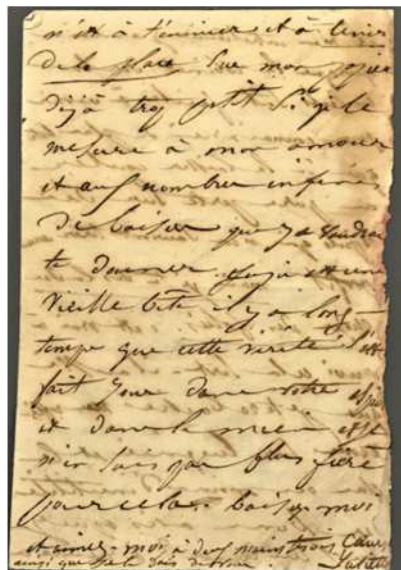 n'est à t'ennuier et à tenir
de la place sur mon papier
déjà trop petit si je le
mesure à mon amour
et aux nombres infinis
de baisers que je voudrais
te donner. Juju est une
vieille bête il y a long-
temps que cette vérité s'est
fait jour dans votre esprit
et dans le mien et je
n'en suis pas plus fière
pour cela. Baisez-moi
et aimez-moi à deux mains trois cœurs
ainsi que je le
Juliette